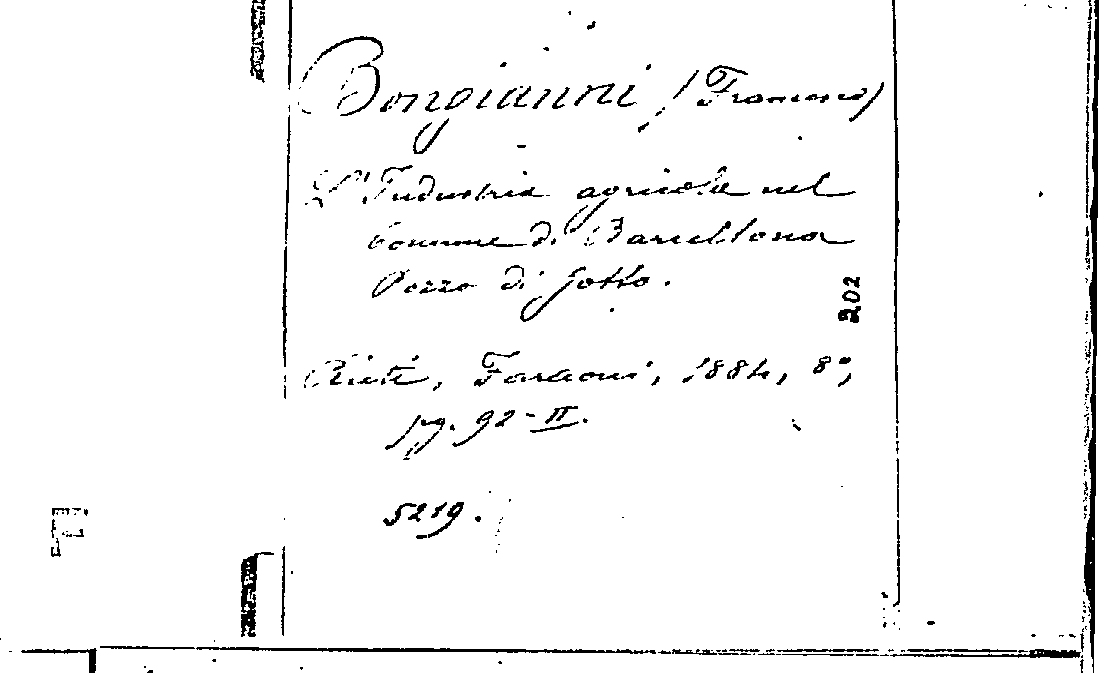 Bongianni (Francesco)
L'Industria agricola nel
Comune di Barcellona
Pozzo di Gotto.
202
Rieti, Faraoni, 1884, 8°,
pg. 92-II.
5219.
F